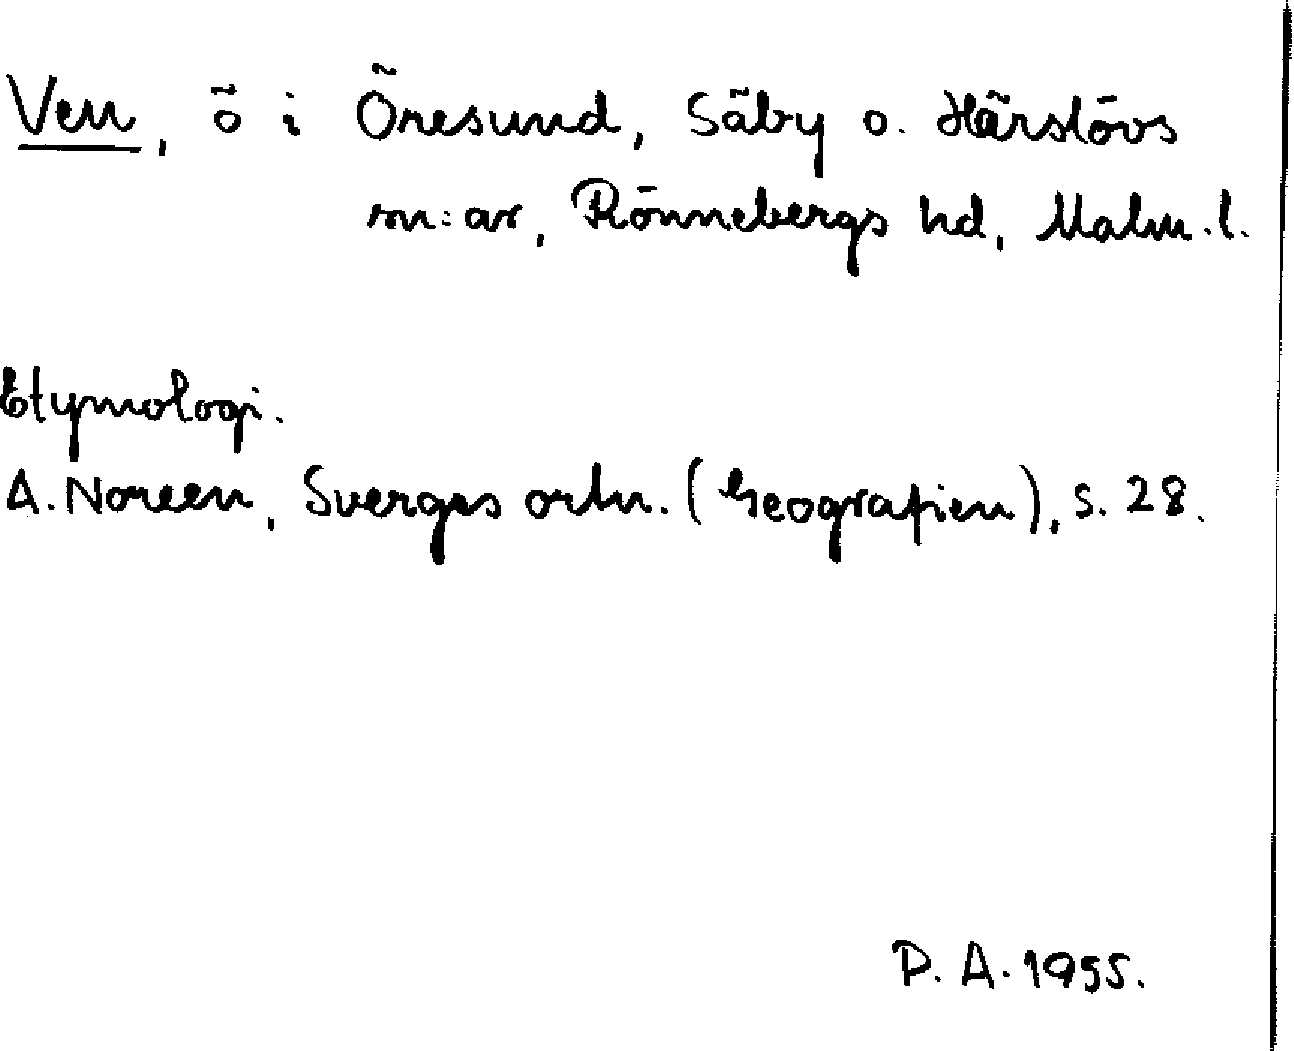 Ven, ö i Öresund, Säby o. Härslövs
sn:ar, Rönnebergs hd, Malm. l.
Etymologi.
A. Noreen, Sverges ortn. (Geografien), s. 28.
P. A. 1955.